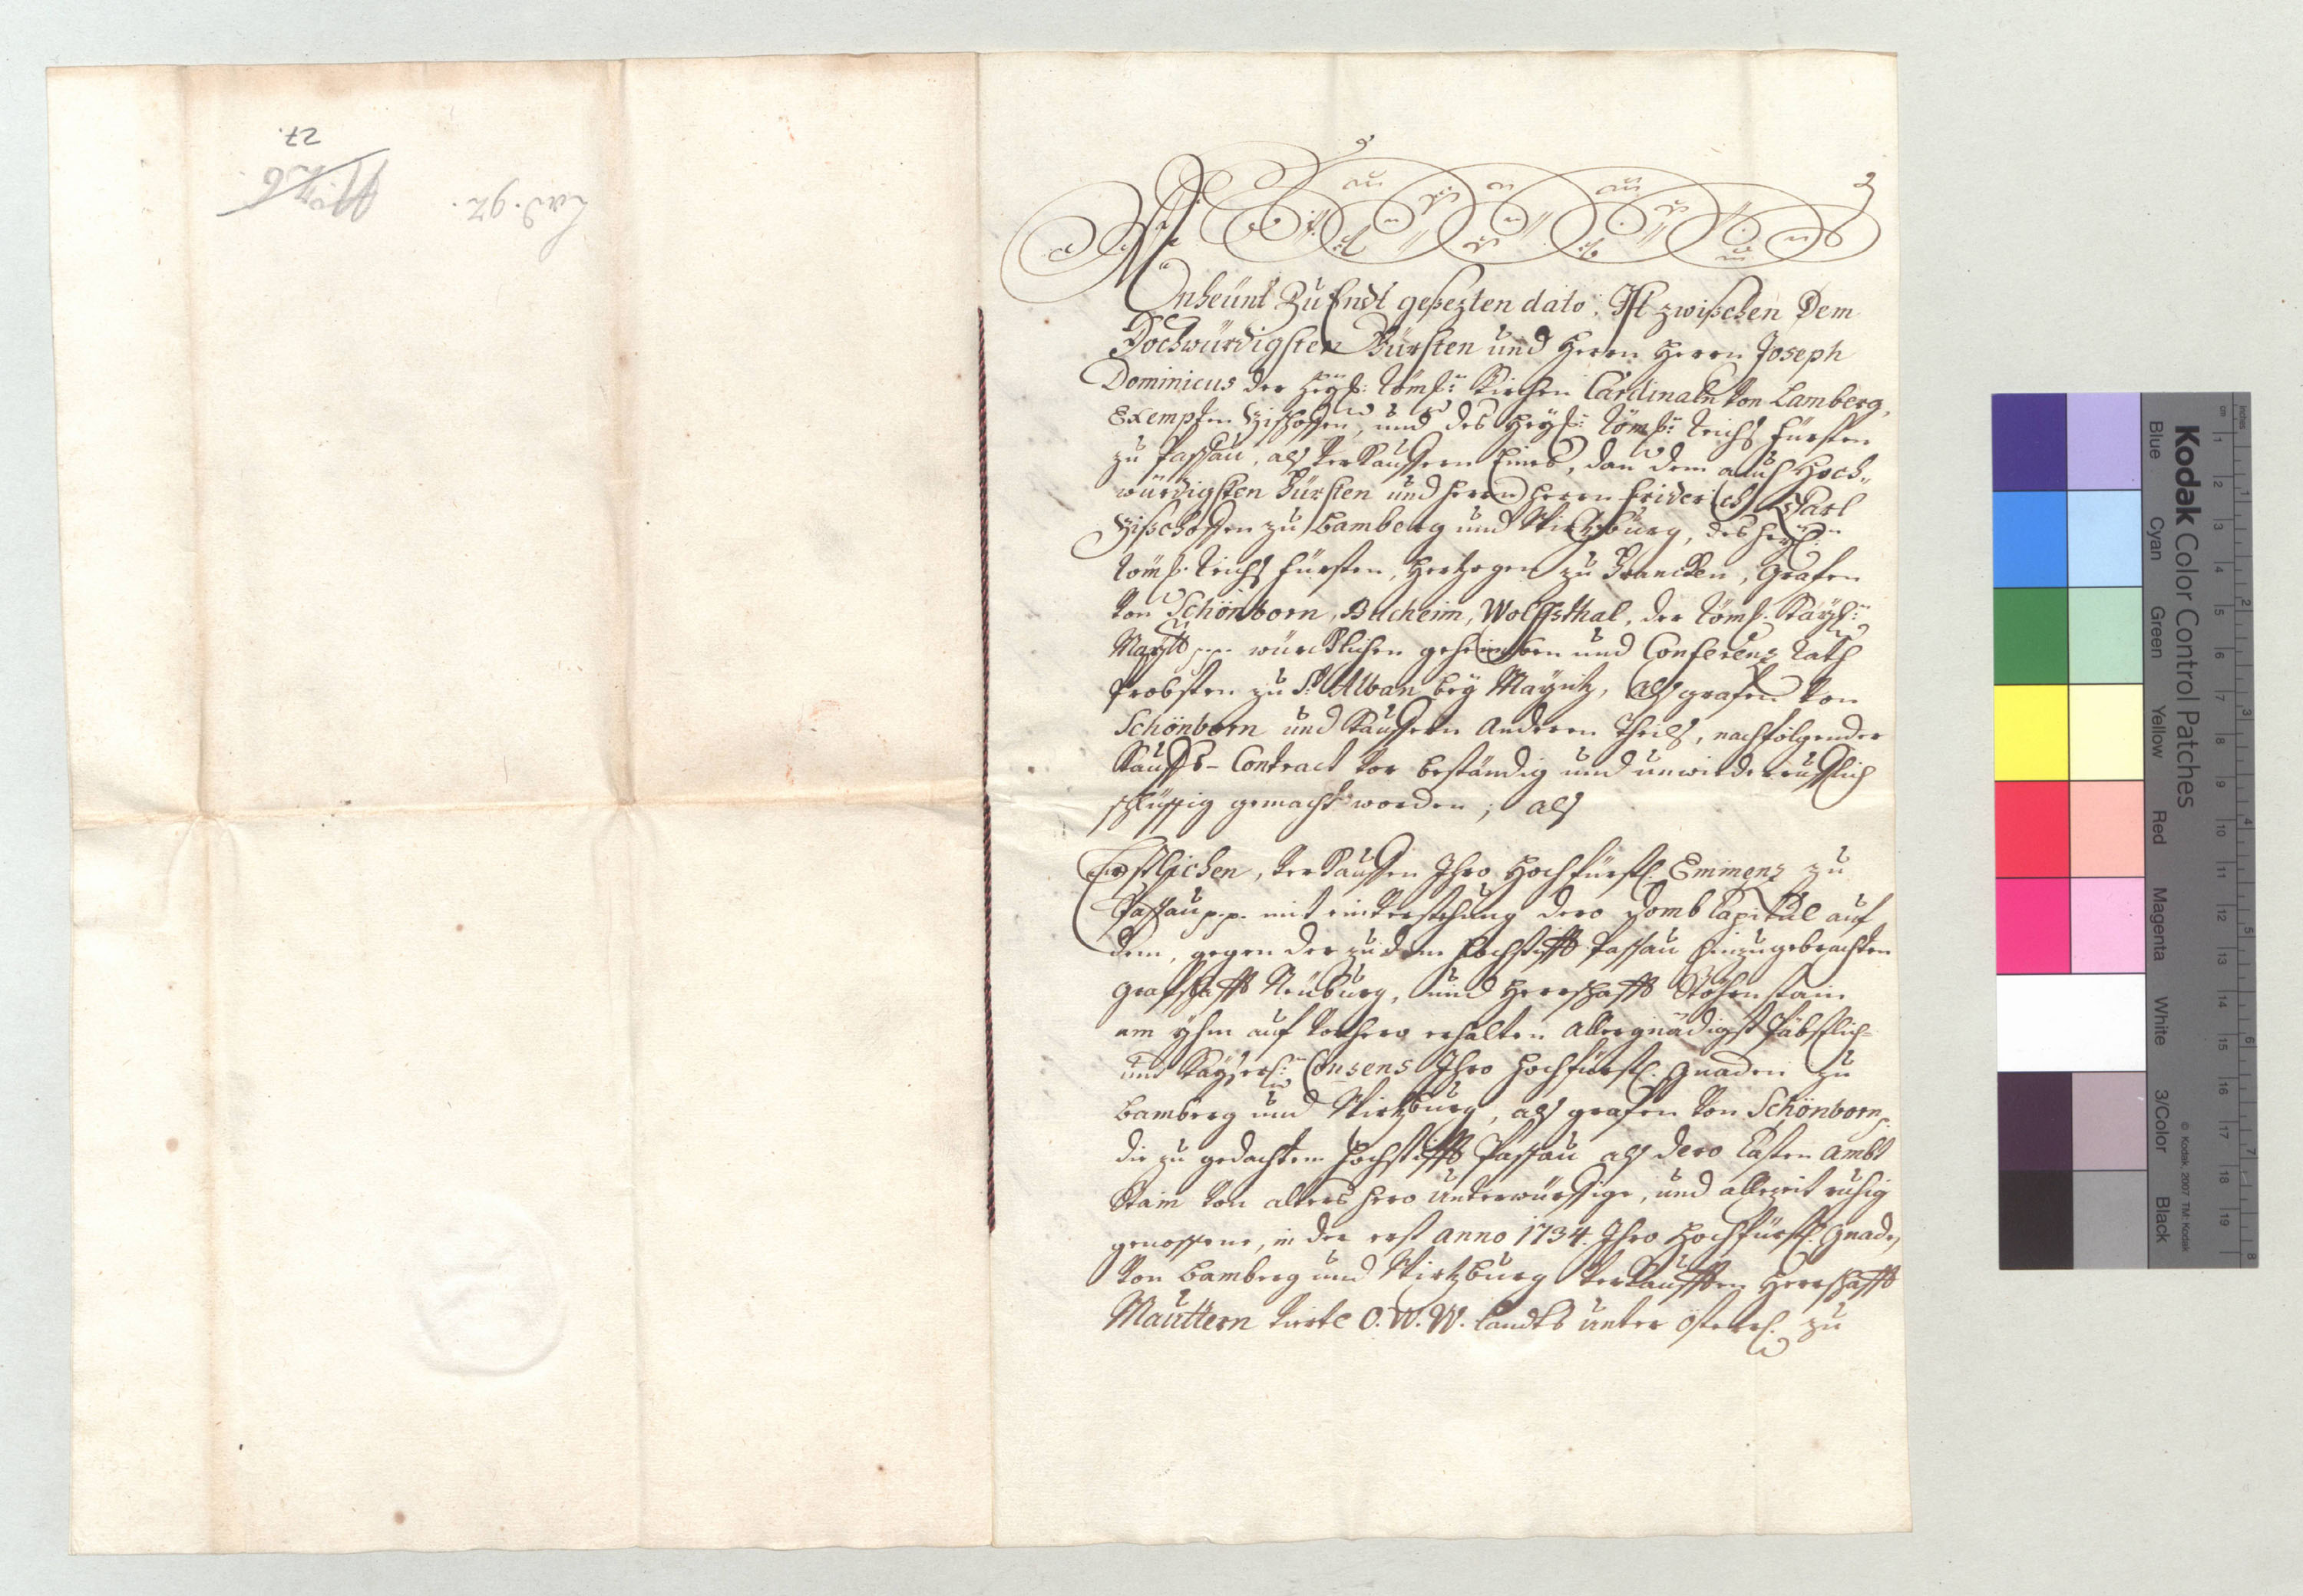 27.
Lad. 92.
Anheünt Zu Endt gesezten dato, Ist zwischen Dem
Hochwürdigsten Fürsten und Herrn Herrn Joseph
Dominicus der Heyl: Röml: Kirchen Cardinaln von Lamberg,
Exempten Bischoffen, und des Heyl: Röml: Reichs Fürsten
zu Passau, als Verkauffern Eines, dan dem auch Hoch„
würdigsten Fürsten und Herrn Herrn Friderich Carl
Bischoffen zu Bamberg und Wirtzburg, des Heyl:
Röml. Reichs Fürsten, Hertzogen zu Francken, Grafen
von Schönborn, Bucheim, Wolffsthal, der Röml. Kayl:
Maytt p.p. würcklichen geheimben und Conferenz Rath
Probsten zu St Alban bey Mayntz, als grafen von
Schönborn und Kauffern Anderen Theils, nachfolgender
Kauffs-Contract vor beständig und unwiderrufflich
schlüssig gemacht worden; als
Erstlichen, verkauffen Ihro Hochfürstl. Eminenz zu
Passau p.p. mit einverstehung dero Domb Capitul auf
dem, gegen der zu dem Hochstifft Passau hinzugebrachten
Grafschafft Neüburg, und Herrschafft
auf vorhero erhalten Allergnädigst Päbstlich-
und Kayserl: Consens Ihro Hochfürstl. Gnaden zu
Bamberg und Wirtzburg, als grafen von Schönborn p.
die zu gedachtem Hochstifft Passau als dero Casten Ambt
Stain von alters hero Unterwürffige, und allezeit ruhig
genossene, in der erst Anno 1734. Ihro Hochfürstl. Gnaden
von Bamberg und Wirtzburg verkaufften Herrschafft
Mauttern Viertl O. W. W. Landts Unter Österl. zu
Kodak Color Control Patches
Blue Cyan Green Yellow Red Magenta White 3/Color Black
© Kodak, 2007 TM: Kodak
cm 1 2 3 4 5 6 7 8 9 10 11 12 13 14 15 16 17 18 19
inches 1 2 3 4 5 6 7 8